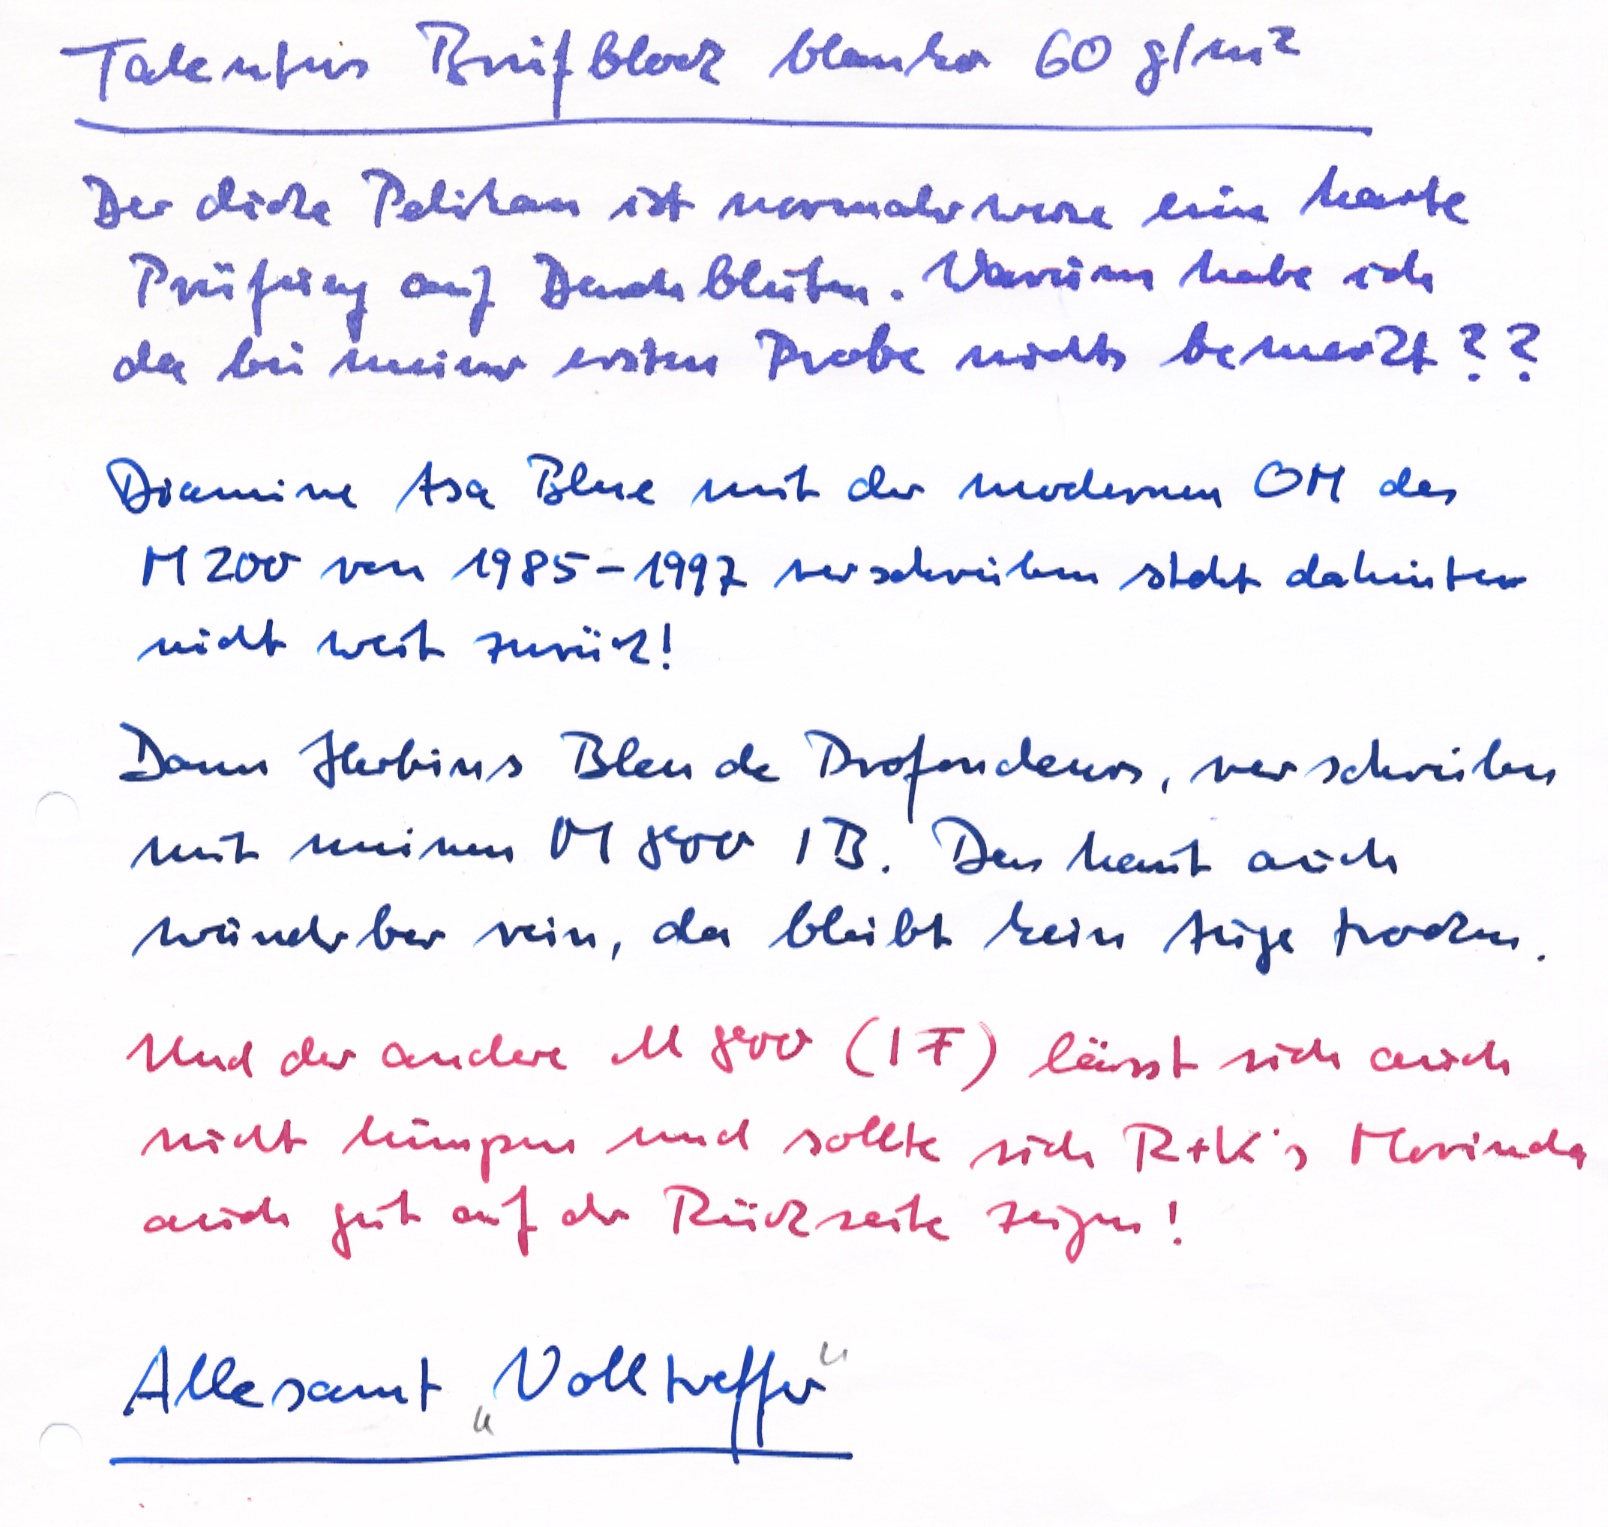 Talentus Briefblock blanko 60 g/m²
Der dicke Pelikan ist normalerweise eine harte
Prüfung auf Durchbluten. Warum habe ich
da bei meiner ersten Probe nichts bemerkt??
Diamine Asa Blue mit der modernen OM des
M200 von 1985-1997 verschrieben steht dahinter
nicht weit zurück!
Dann Herbins Bleu de Profondeurs, verschrieben
mit meinem M800 IB. Das haut auch
wunderbar rein, da bleibt kein Auge trocken.
Und der andere M800 (IF) lässt sich auch
nicht lumpen und sollte sich R+K's Morinda
auch gut auf der Rückseite zeigen!
Allesamt „Volltreffer“